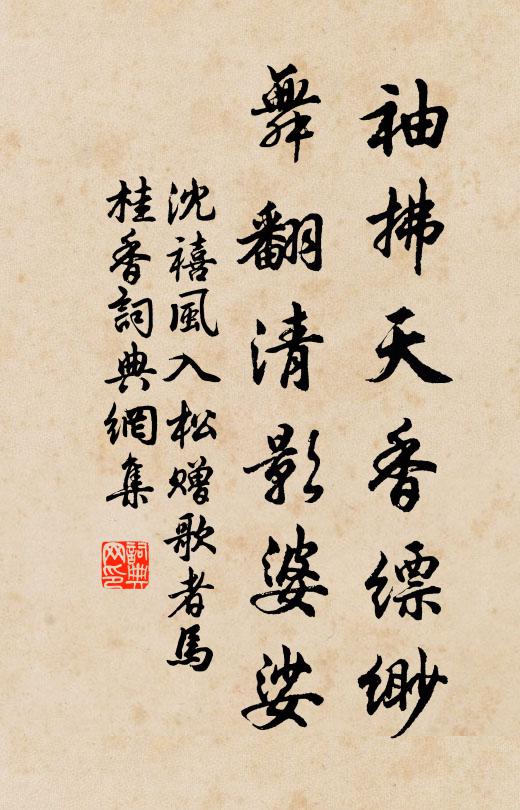 袖拂天香缥缈
舞翻清影婆娑
沈禧風入松赠歌者馬
桂香詞典網集
詞典网印